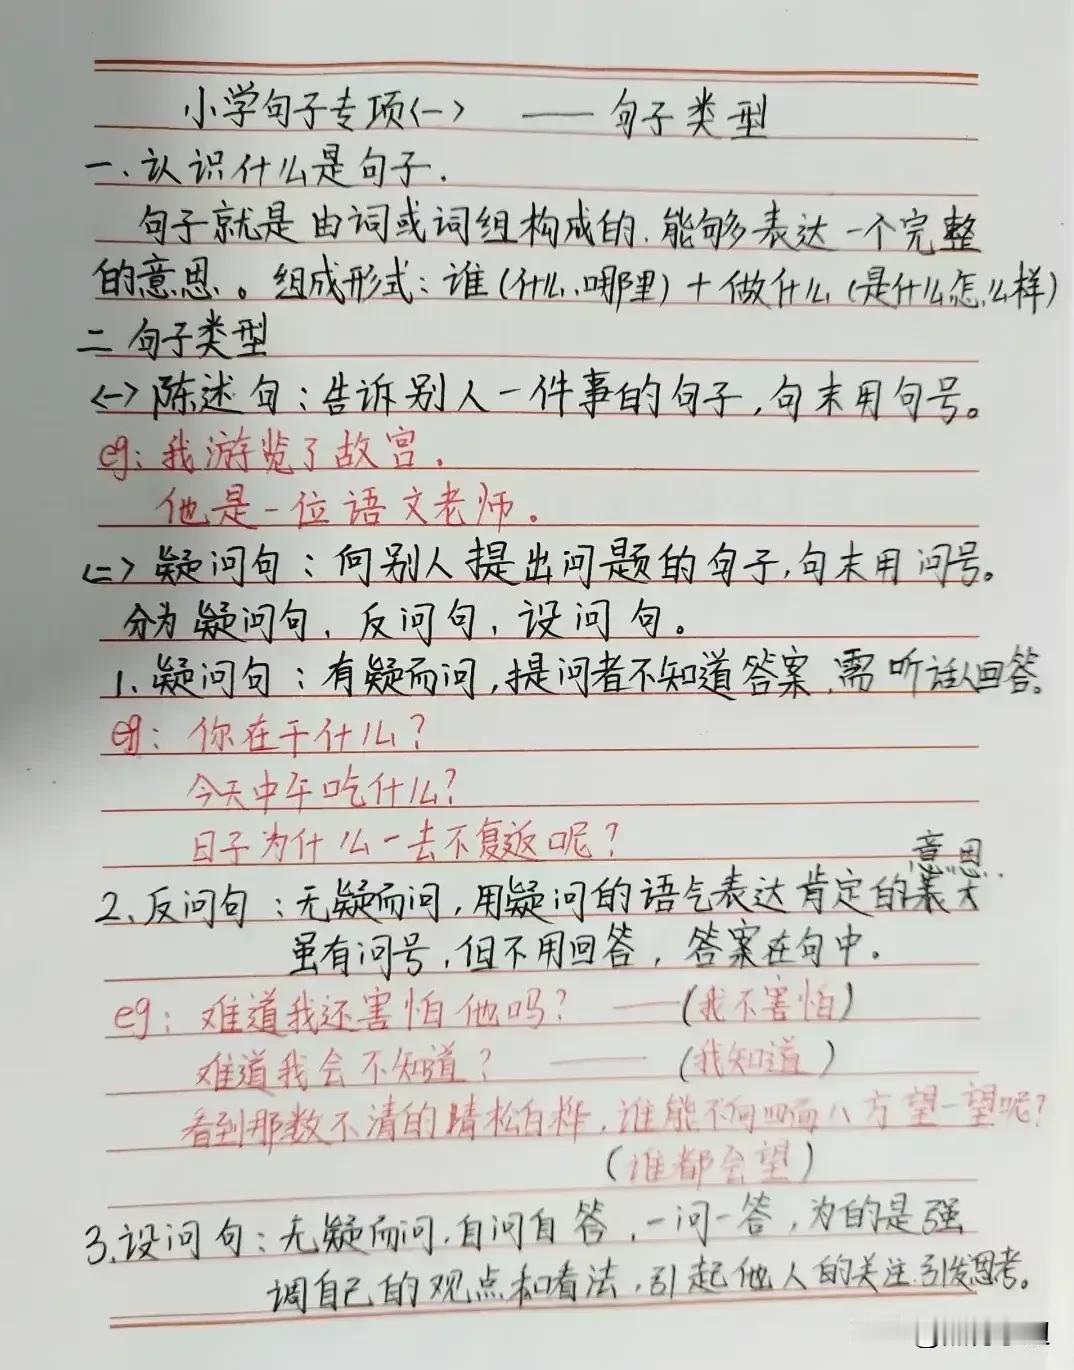 小学句子专项<一> —— 句子类型
一、认识什么是句子.
句子就是由词或词组构成的.能够表达一个完整
的意思。组成形式：谁(什么.哪里)+做什么(是什么怎么样)
二 句子类型
<一> 陈述句：告诉别人一件事的句子,句末用句号。
eg: 我游览了故宫.
他是一位语文老师.
<二> 疑问句：向别人提出问题的句子,句末用问号。
分为疑问句、反问句、设问句。
1、疑问句：有疑而问,提问者不知道答案,需听话人回答。
eg: 你在干什么?
今天中午吃什么?
日子为什么一去不复返呢?
意思..
2、反问句：无疑而问,用疑问的语气表达肯定的
虽有问号,但不用回答,答案在句中.
eg: 难道我还害怕他吗? ——(我不害怕)
难道我会不知道? ——(我知道)
看到那数不清的青松白桦,谁能不向四面八方望一望呢?
(谁都会望)
3.设问句：无疑而问,自问自答,一问一答,为的是强
调自己的观点和看法,引起他人的关注.引发思考。